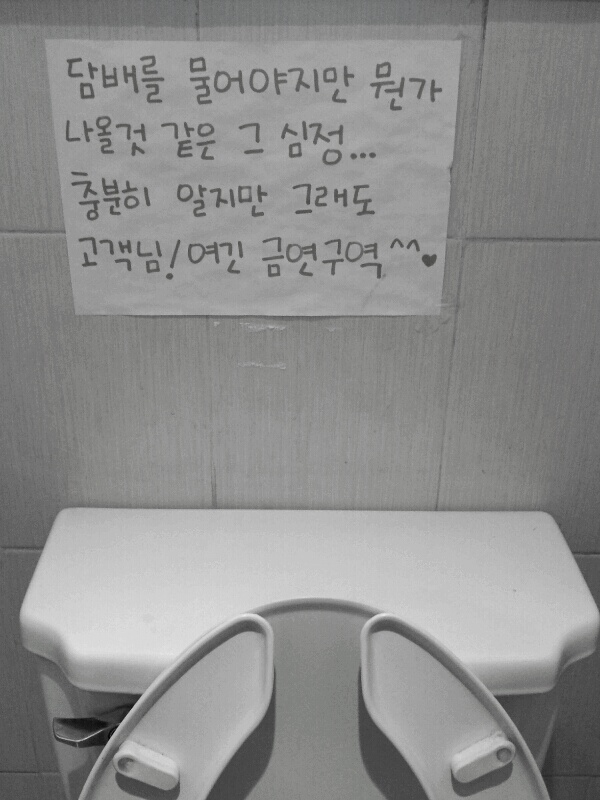 담배를 물어야지만 뭔가
나올것 같은 그 심정...
충분히 알지만 그래도
고객님! 여긴 금연구역^^♥